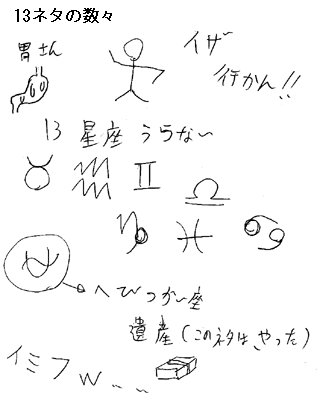 13ネタの数々
胃さん
イザ
行かん!!
13星座うらない
♉ ♒ ♊ ♎
♑ ♓ ♋
へびつかい座
遺産(このネタは、やった)
イミフw...